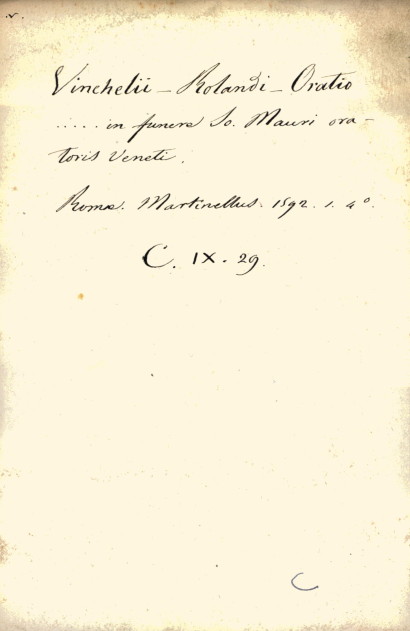 Vinchelii - Rolandi - Oratio
..... in funere Jo. Mauri ora-
toris Veneti.
Romæ. Martinellus. 1592. 1. 4º.
C. IX. 29.
C